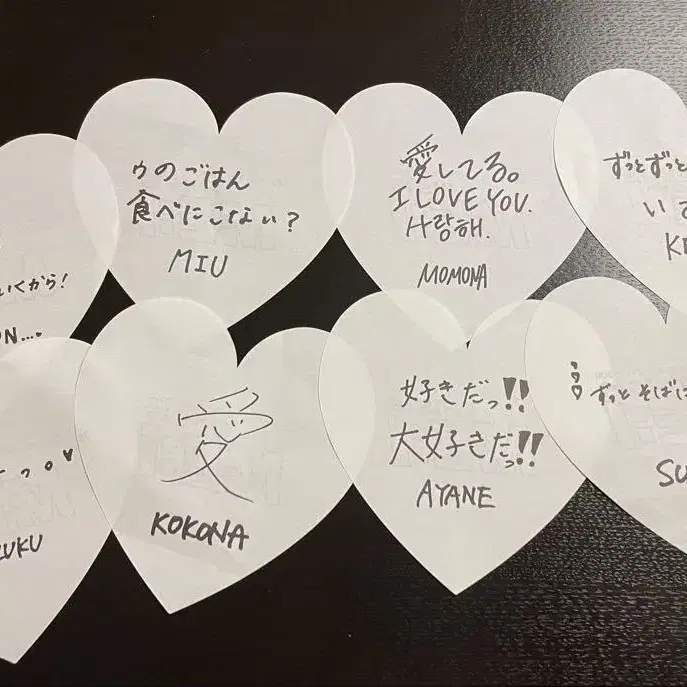 いくから!
ウのごはん
食べにこない?
MIU
愛してる。
I LOVE YOU.
사랑해.
MOMONA
ずっとずっと
い
っ。♥
UKU
愛
KOKONA
好きだっ!!
大好きだっ!!
AYANE
ずっとそばに
SU